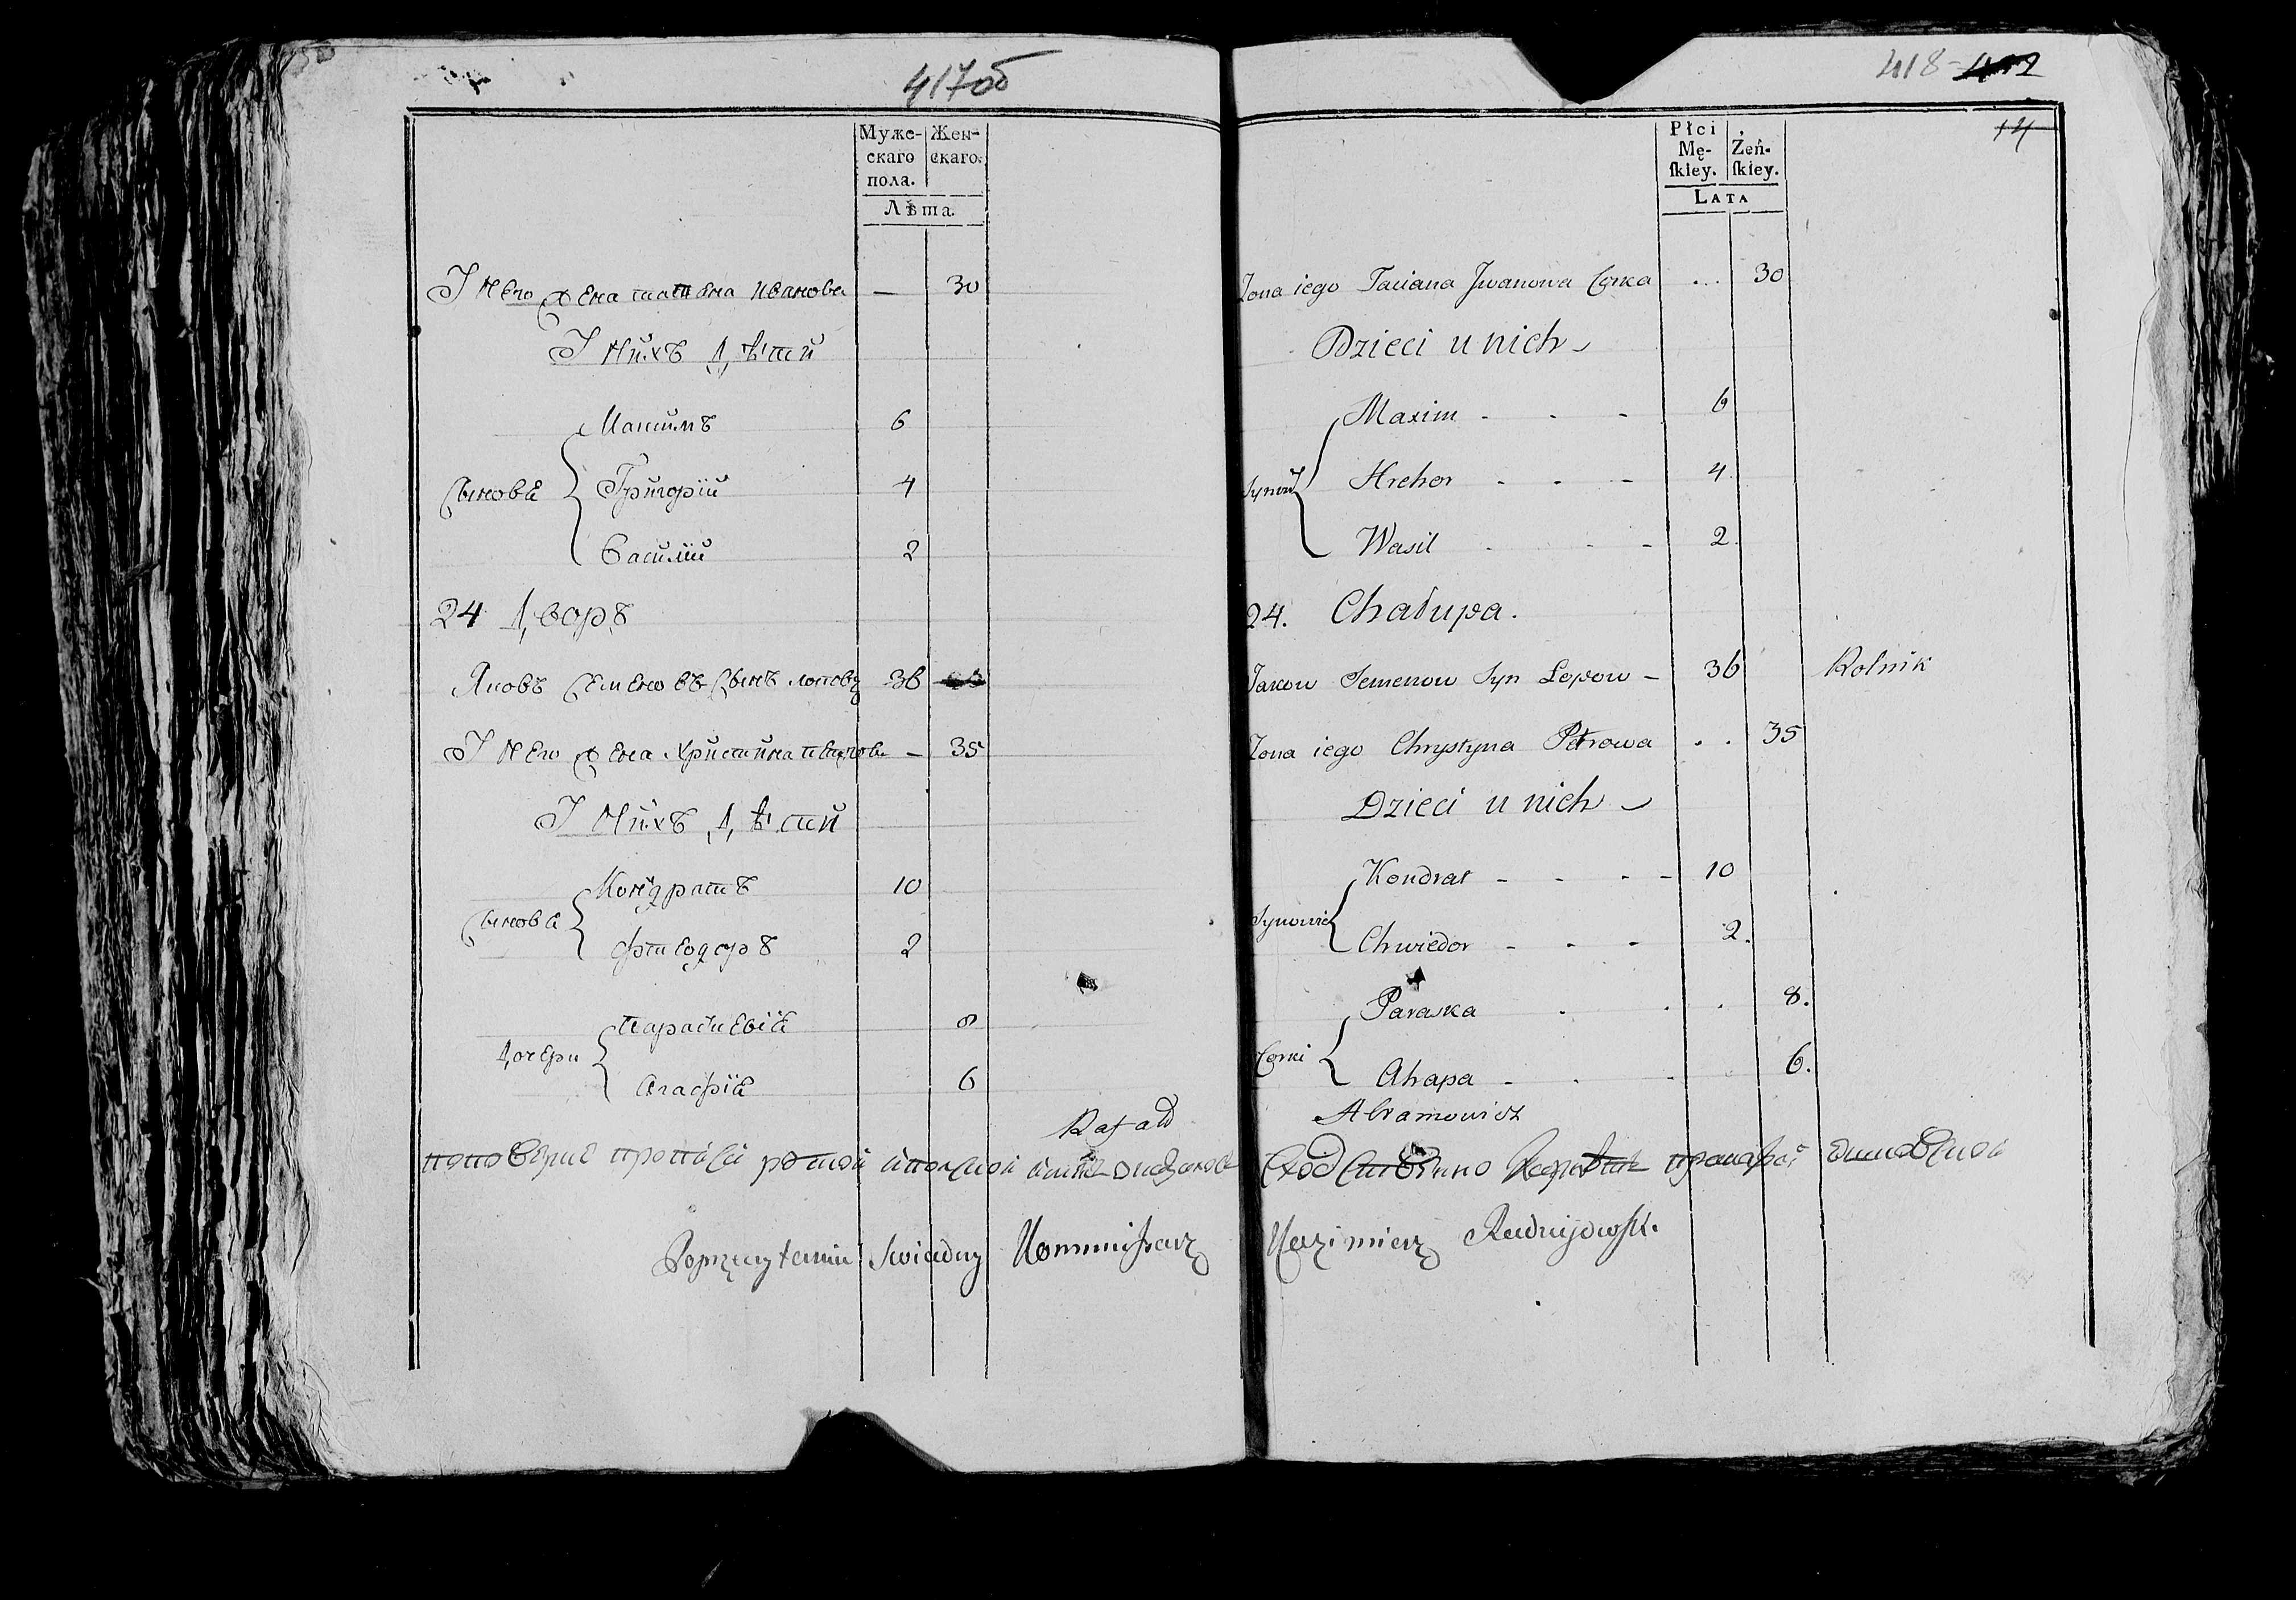 417об
Муже-
скаго
пола.
Жен-
скаго.
Лѣта.
У Него жена татьяна иванова — 30
У Нихъ дѣти
Максимъ 6
Сыновья Григорій 4
Василій 2
24 Дворъ
Яковъ Семеновъ Сынъ лоповъ 36
У Него жена Христина петрова — 35
У Нихъ дѣти
Кондратъ 10
Сыновья
Фтеодоръ 2
Параскевія 8
Дочери
Агафія 6
Rafał
Poprzeczytaniu Swiadczy Kommissarz
418
14
Płci
Mę-
ſkiey.
Żeń-
ſkiey.
LATA
Zona iego Taciana Jwanowa Corka ... 30
Dzieci u nich
Maxim - - - 6
Synowie Hrehor - - - 4
Wasil - - - 2.
24. Chałupa.
Jakow Semenow Syn Łopow - 36 Rolnik
Zona iego Chrystyna Petrowa . . 35
Dzieci u nich
Kondrat - - - - 10
Synowie
Chwiedor - - - 2.
Paraska . . . 8.
Corki
Ahapa - . - 6.
Abramowicz
Kazimierz